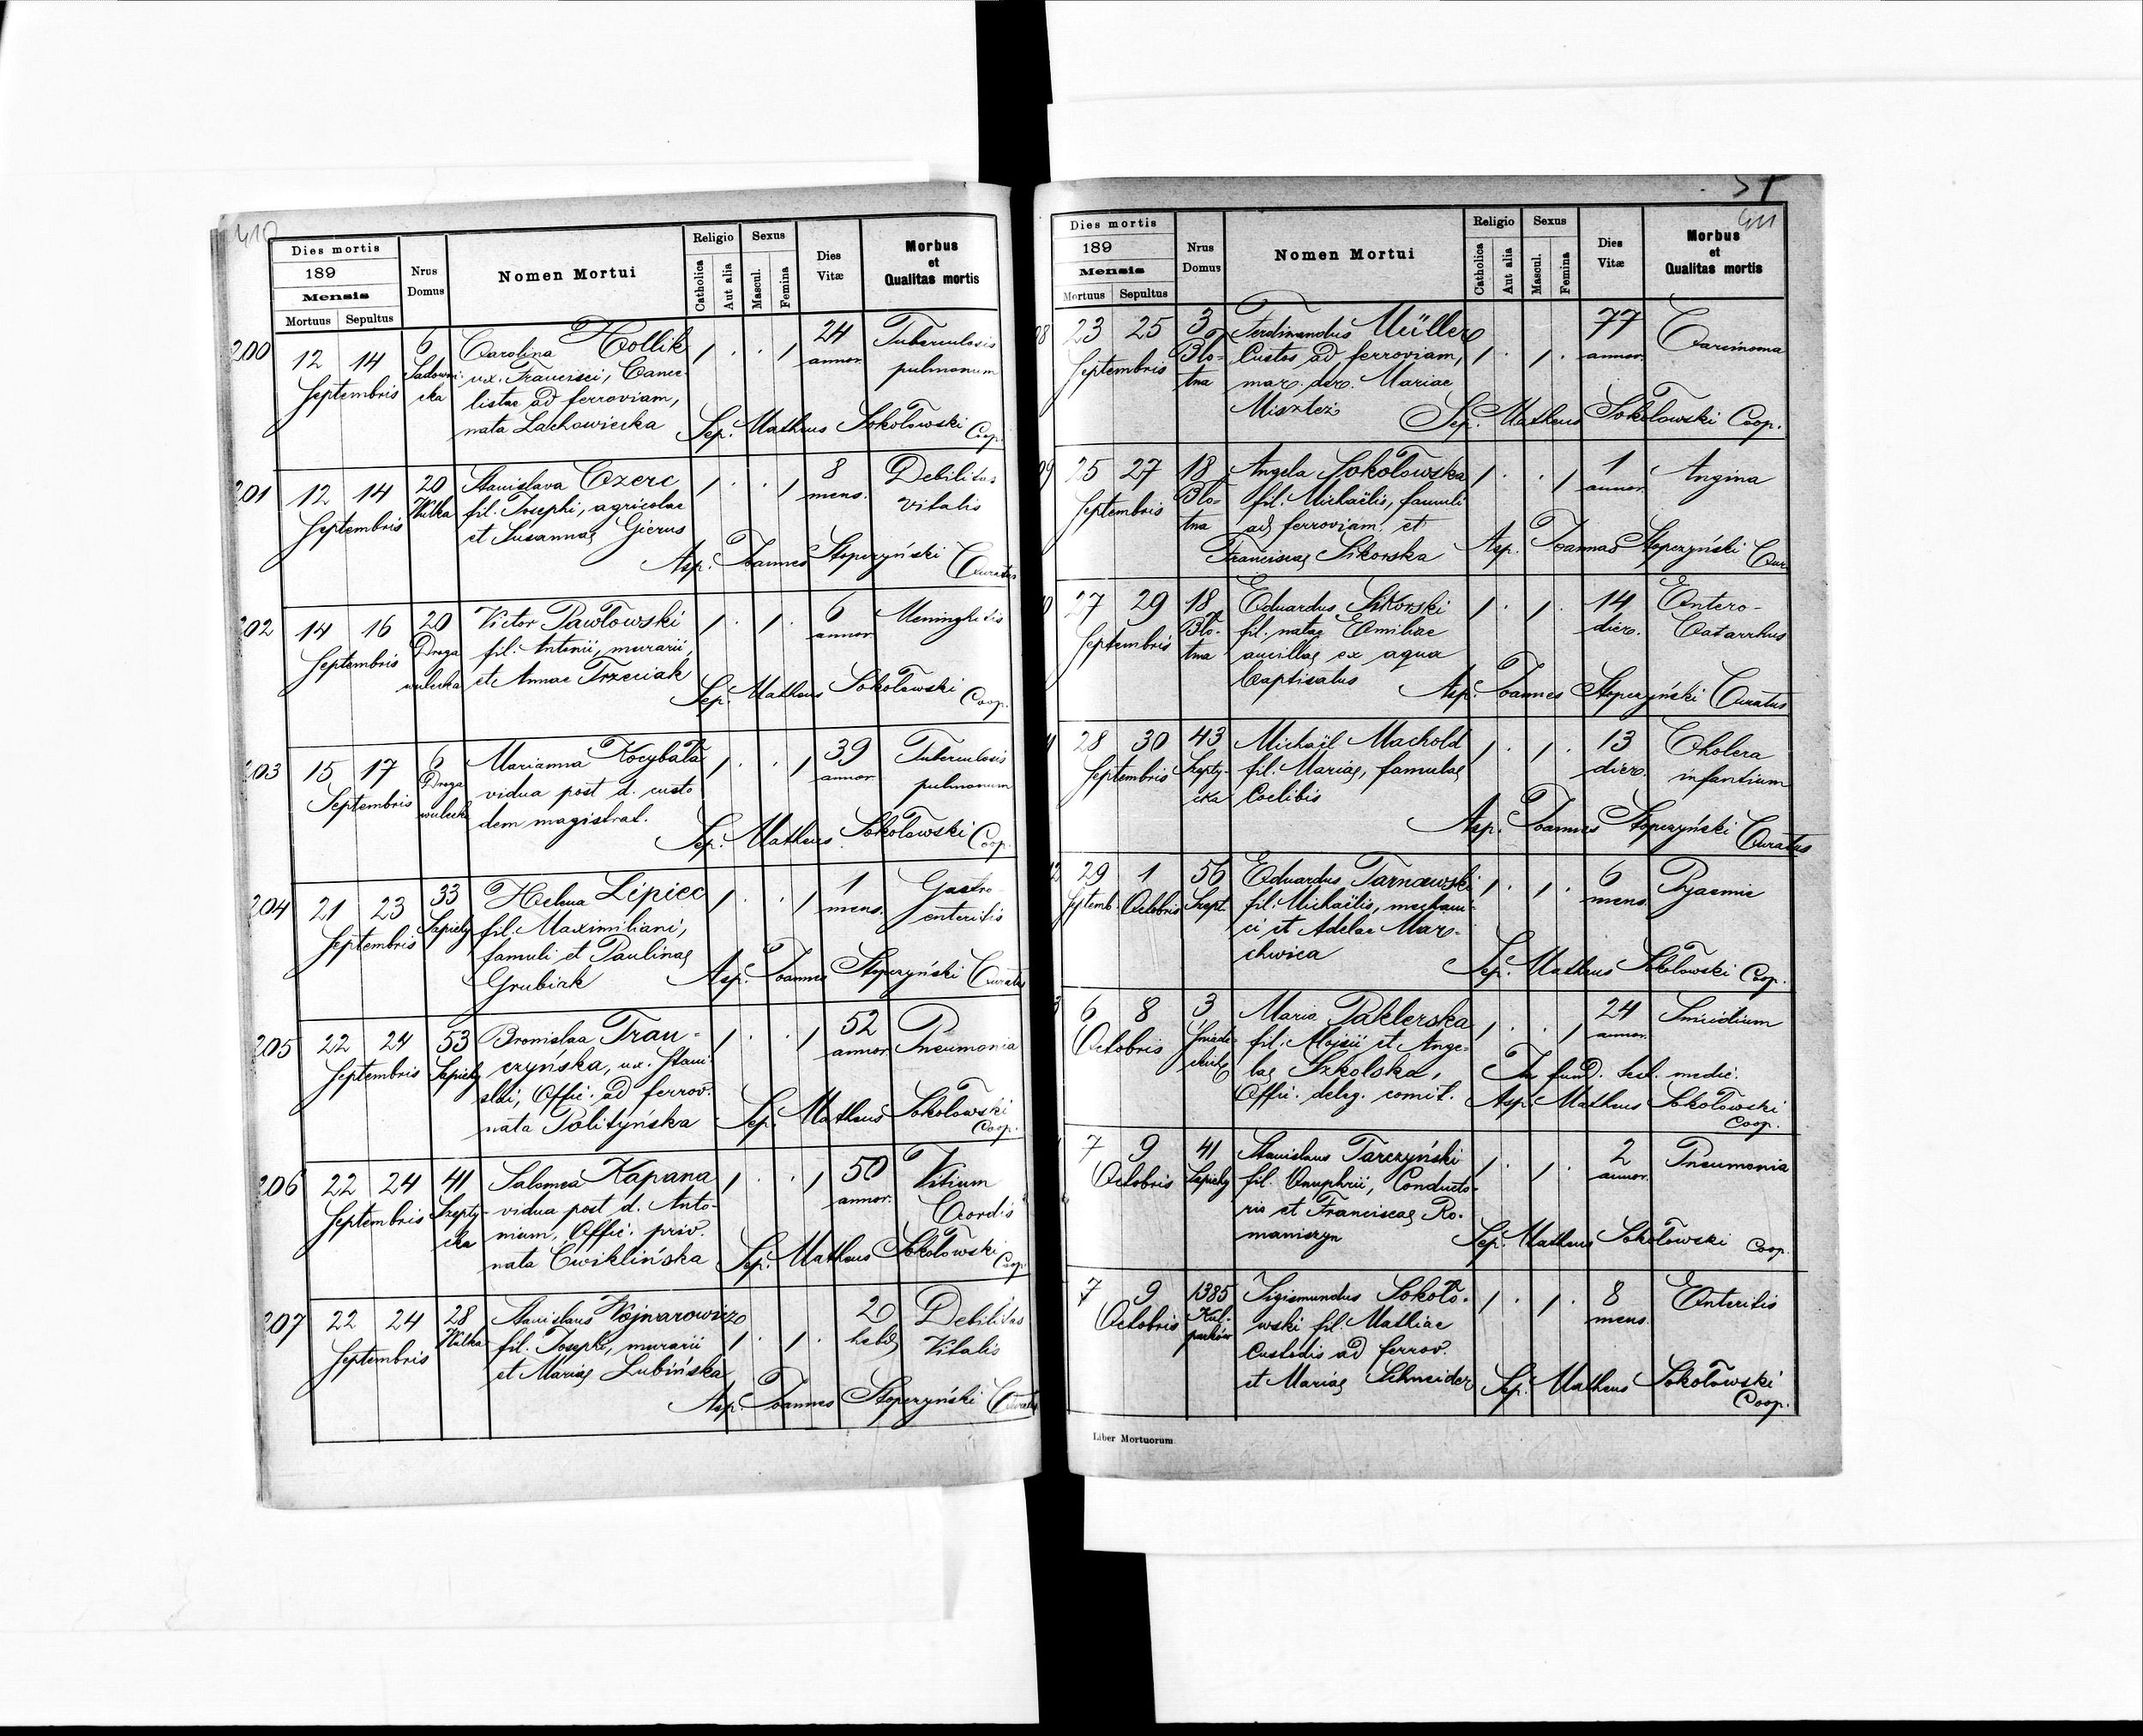 410
Dies mortis
189
Mensis
Mortuus Sepultus
Nrus Domus
Nomen Mortui
Religio
Catholica
Aut alia
Sexus
Mascul.
Femina
Dies Vitæ
Morbus et Qualitas mortis
200 12 14 6 Carolina Hollik / . . / 24 Tuberculosis
Septembris Sadowni- ux. Francisci, Cance- annor. pulmonum
cka listae ad ferroviam,
nata Lachowiecka Sep. Matheus Sokołowski Coop.
201 12 14 20 Stanislava Czerc / . . / 8 Debilitas
Septembris Wulka fil. Josephi, agricolae mens. vitalis
et Susannae Gierus
Asp. Joannes Stopczyński Curatus
202 14 16 20 Victor Pawłowski / . / . 6 Meninghitis
Septembris Droga fil. Antonii, murarii, annor.
wulecka et Annae Trzeciak Sep. Matheus Sokołowski Coop.
203 15 17 6 Marianna Kocybała / . . / 39 Tuberculosis
Septembris Droga vidua post d. custo annor. pulmonum
wulecka dem magistrat.
Sep. Matheus Sokołowski Coop.
204 21 23 33 Helena Lipiec / . . / 1 Gastro-
Septembris Sapiehy fil. Maximiliani, mens. enteritis
famuli et Paulinae
Grubiak Asp. Joannes Stopczyński Curatus
205 22 24 53 Bronislaa Trau- / . . / 52 Pneumonia
Septembris Sapiehy czyńska, ux. Stani- annor.
slai, Offic. ad ferrov.
nata Polityńska Sep. Matheus Sokołowski Coop.
206 22 24 41 Salomea Kapana / . . / 50 Vitium
Septembris Szepty- vidua post d. Anto- annor. Cordis
cka nium, Offic. priv.
nata Ćwiklińska Sep. Matheus Sokołowski Coop.
207 22 24 28 Stanislaus Wojnarowicz / . / . 20 Debilitas
Septembris Wulka fil. Josephi, murarii hebd. Vitalis
et Mariae Lubińska
Asp. Joannes Stopczyński Curatus
411
Dies mortis
189
Mensis
Mortuus Sepultus
Nrus Domus
Nomen Mortui
Religio
Catholica
Aut alia
Sexus
Mascul.
Femina
Dies Vitæ
Morbus et Qualitas mortis
8 23 25 3 Ferdinandus Müller / . / . 77 Carcinoma
Septembris Bło- Custos ad ferroviam, annor.
tna mar. der. Mariae
Misztez Sep. Matheus Sokołowski Coop.
9 25 27 18 Angela Sokołowska / . . / 1 Angina
Septembris Bło- fil. Michaëlis, famuli annor.
tna ad ferroviam et
Franciscae Sikorska Asp. Joannes Stopczyński Cur.
0 27 29 18 Eduardus Sikorski / . / . 14 Entero-
Septembris Bło- fil. natae Emiliae dier. Catarrhus
tna ancillae ex aqua
baptisatus Asp. Joannes Stopczyński Curatus
28 30 43 Michaël Machold / . / . 13 Cholera
Septembris Szepty- fil. Mariae, famulae dier. infantium
cka Coelibis
Asp. Joannes Stopczyński Curatus
2 29 1 56 Eduardus Tarnawski / . / . 6 Pyaemie
Septemb. Octobris Szept. fil. Michaëlis, mechani- mens.
ci et Adelae Mar-
chwica Sep. Matheus Sokołowski Coop.
3 6 8 3 Maria Paklerska / . . / 24 Suicidium
Octobris Śniade- fil. Aloisii et Ange- annor.
lae Szkolska, In fund. sect. medic.
Offic. deleg. comit. Asp. Matheus Sokołowski
Coop.
7 9 41 Stanislaus Tarczyński / . / . 2 Pneumonia
Octobris Sapiehy fil. Onuphrii, Conducto- annor.
ris et Franciscae Ro-
maniszyn Sep. Matheus Sokołowski Coop.
7 9 1385 Sigismundus Sokoło- / . / . 8 Enteritis
Octobris Kul- wski fil. Mathiae mens.
parków Custodis ad ferrov.
et Mariae Schneider Sep. Matheus Sokołowski
Coop.
Liber Mortuorum